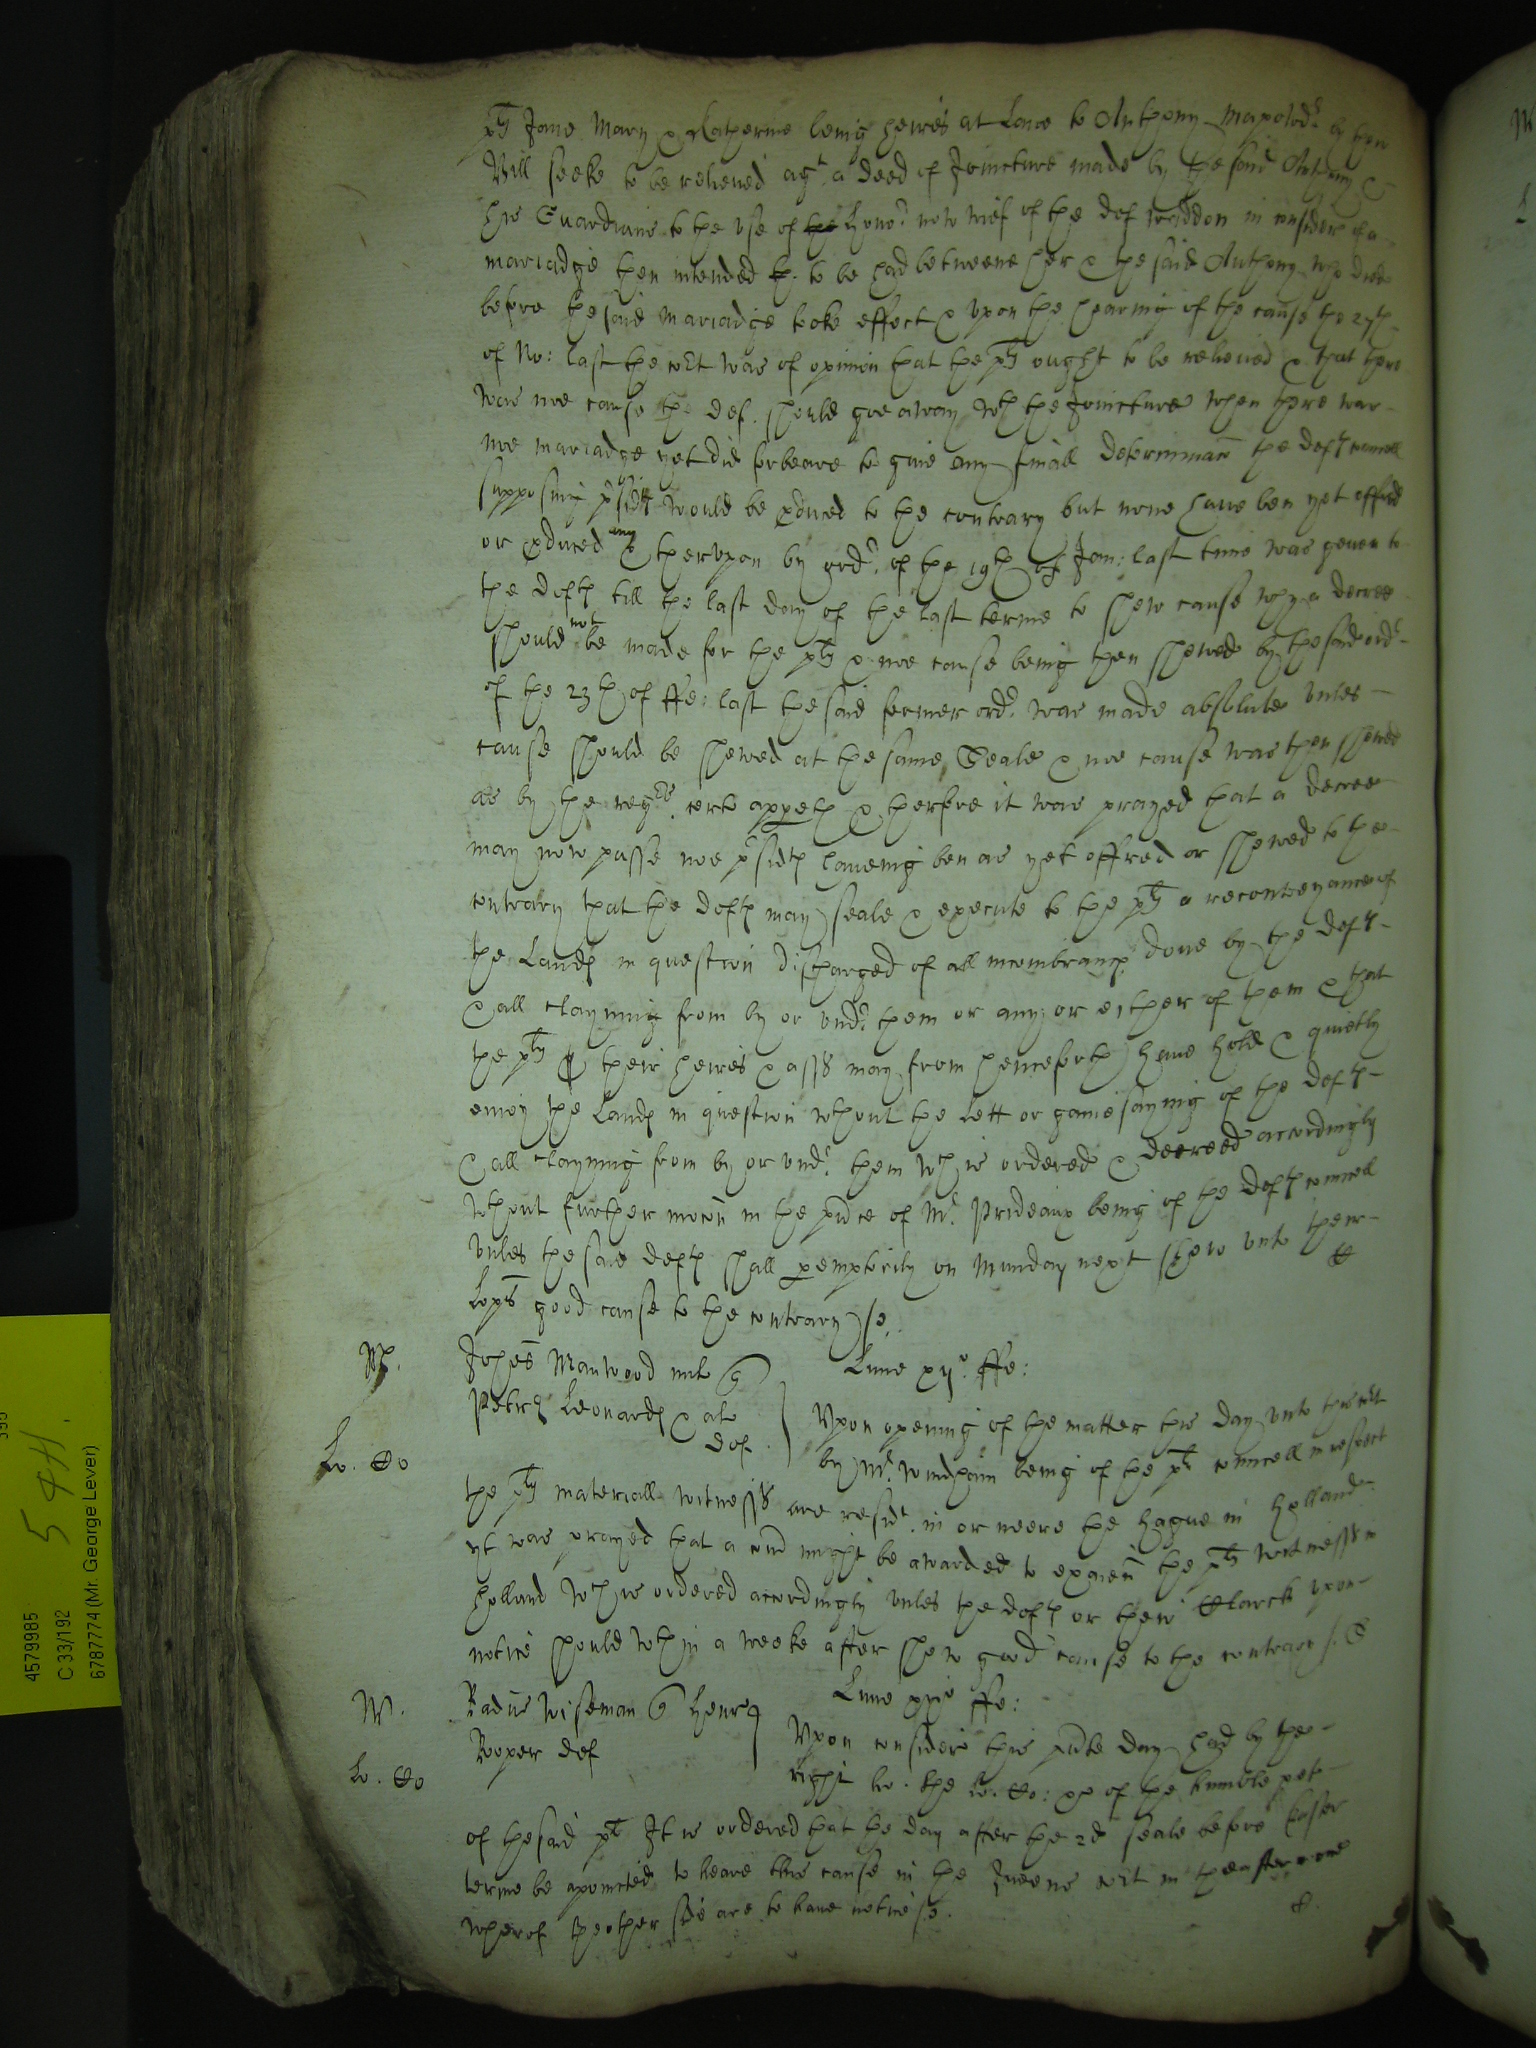 plts Jane Mary & Katherine being heires at Lawe to Anthony Mapowdr by their
Bill seeke to be relieued agt a deed of Joincture made by the said Anthony &
his Guardians to the vse of the Hono: now wief of the def in considerac of a
mariadge then intended to be had betweene her & the said Anthony who died
before the said mariadge tooke effect & vpon the hearing of the cause the 27th
of No: last the cort was of opinion that the plts ought to be relieued & that there
was noe cause the def. should goe away wth the Joincture when there was
noe mariadge yet did forbeare to giue any finall determinacn the defts councell
supposing would be pduced to the contrary but none haue ben yet offred
or pduced any & thervpon by ordr of the 19th of Jan: last time was geuen to
the defts till the last day of the last terme to shew cause why a decree
should not be made for the plts & noe cause being then shewed by the said ordr
of the 23th of ffe: last the said former ordr was made absolute vnles
cause should be shewed at the same Seale & noe cause was then shewed
as by the regrs certe appeth & therfore it was prayed that a decree
may now passe noe psidts haueing ben as yet offred or shewed to the
contrary that the defts may seale & execute to the plts a reconveyance of
the Lands in question discharged of all incombrancs done by the defts
& all clayming from by or vndr them or any or either of them & that
the plts & their heires & asss may from henceforth haue hold & quietly
enioy the Lands in question wthout the lett or gainesaying of the defts
& all clayming from by or vndr them wch is ordered & decreed accordingly
wthout further mocn in the pnce of Mr Prideaux being of the defts councell
vnles the said defts shall pemptorily on Munday next shew vnto their
Lopps good cause to the contrary /
Johes Manwood mil q
Lune xijo ffe:
Petrus Leonards & al
def
Lo. Co
Vpon opening of the matter this day vnto this cort
by Mr Windham being of the plts councell in respect
the plts materiall witnesss are resident in or neere the Hague in Holland
yt was prayed that a com might be awarded to examn the plts witnesss in
Holland wch is ordered accordingly vnles the defts or their Clarck vpon
notice should wthin a weeke after shew good cause to the contrary /
W.
Radus Wiseman q Henr
Lune ffe:
Rooper def
Lo. Co
Vpon considerc this pnte day had by the
right ho. the Lo. Co: of the humble pet
of the said plt It is ordered that the day after the 2d seale before Easter
terme be apointed to heare this cause in the Queenes cort in the afternoone
wherof the other side are to haue notice